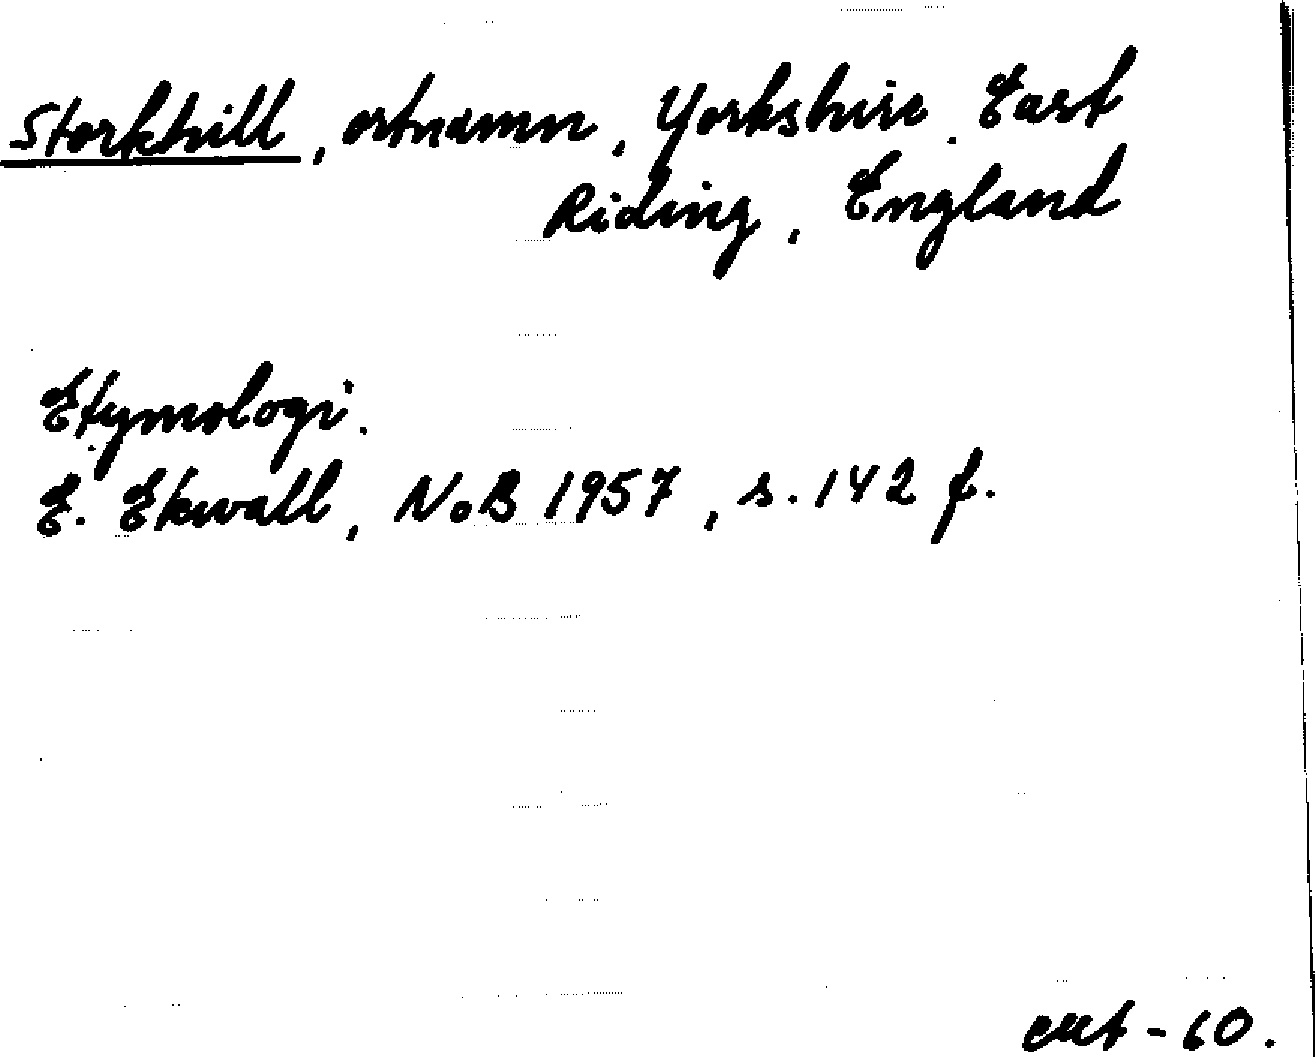 Storkhill, ortnamn, Yorkshire. East
Riding, England
Etymologi.
E. Ekwall, NoB 1957, s. 142 f.
-60.